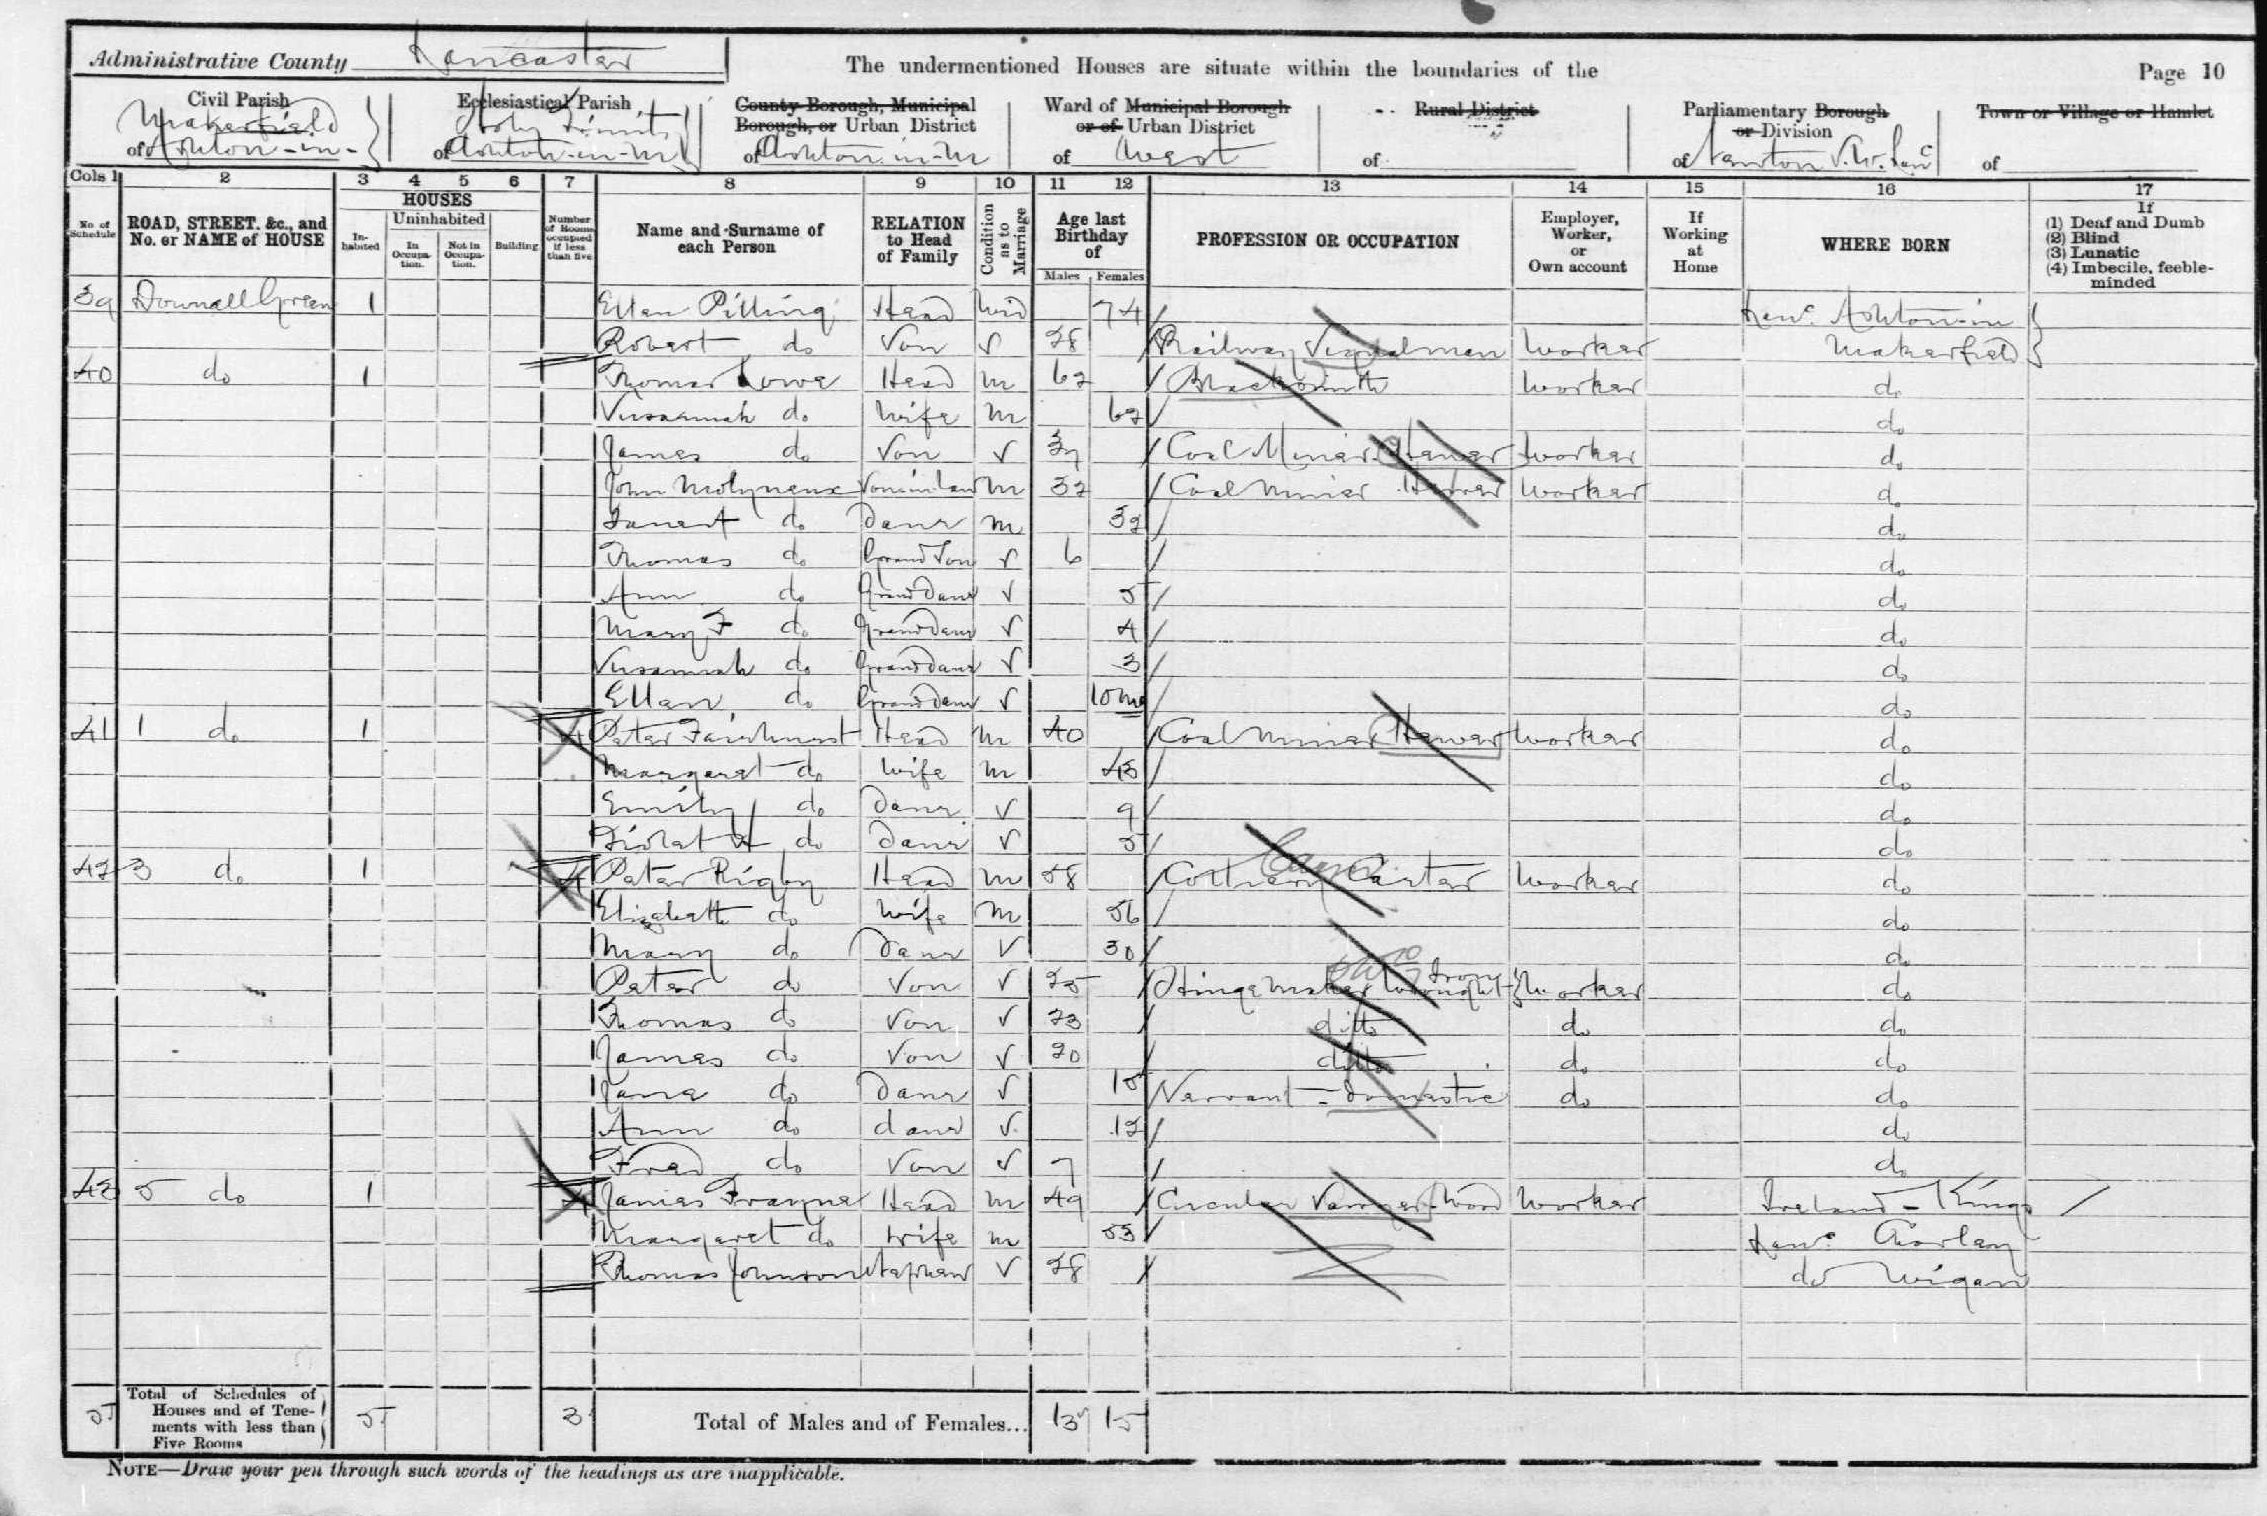 Administrative County Lancaster
The undermentioned Houses are situate within the boundaries of the
Page 10
Civil Parish of Ashton-in-Makerfield
Ecclesiastical Parish of Holy Trinity Ashton-in-M
County Borough, Municipal Borough, or Urban District of Ashton-in-M
Ward of Municipal Borough or of Urban District of West
Rural District of
Parliamentary Borough or Division of Newton S.W. Lanc
Town or Village or Hamlet of
Cols 1 2 3 4 5 6 7 8 9 10 11 12 13 14 15 16 17
No of Schedule
ROAD, STREET, &c., and No. or NAME of HOUSE
HOUSES
Inhabited
Uninhabited
In Occupation.
Not in Occupation.
Building
Number of Rooms occupied if less than five
Name and Surname of each Person
RELATION to Head of Family
Condition as to Marriage
Age last Birthday of
Males Females
PROFESSION OR OCCUPATION
Employer, Worker, or Own account
If Working at Home
WHERE BORN
If (1) Deaf and Dumb (2) Blind (3) Lunatic (4) Imbecile, feeble-minded
39 Downall Green 1 Ellen Pilling Head Wid 74 Lanc. Ashton-in
Robert do Son S 28 Railway Signalman Worker Makerfield
40 do 1 Thomas Lowe Head M 62 Blacksmith Worker do
Susannah do Wife M 62 do
James do Son S 37 Coal Miner Hewer Worker do
John Molyneux Son in law M 32 Coal Miner Hewer Worker do
Janet do Daur M 32 do
Thomas do Grand Son S 6 do
Ann do Grand Daur S 5 do
Mary F do Grand Daur S 4 do
Susannah do Grand Daur S 3 do
Ellen do Grand Daur S 10 mo do
41 1 do 1 4 Peter Fairhurst Head M 40 Coal Miner Hewer Worker do
Margaret do Wife M 43 do
Emily do Daur S 9 do
Violet H do Daur S 5 do
42 3 do 1 4 Peter Rigby Head M 58 Colliery Carter Worker do
Elizabeth do Wife M 56 do
Mary do Daur S 30 do
Peter do Son S 25 Hinge Maker Wrought Iron Worker do
Thomas do Son S 23 ditto do do
James do Son S 20 ditto do do
Jane do Daur S 15 Servant - Domestic do do
Ann do daur S 12 do
Fred do Son S 7 do
43 5 do 1 4 James Frayne Head M 49 Circular Sawyer Wood Worker Ireland - Kings
Margaret do Wife M 53 Lanc. Chorley
Thomas Johnson Nephew S 28 do Wigan
5 Total of Schedules of Houses and of Tenements with less than Five Rooms 5 3 Total of Males and of Females... 13 15
NOTE—Draw your pen through such words of the headings as are inapplicable.